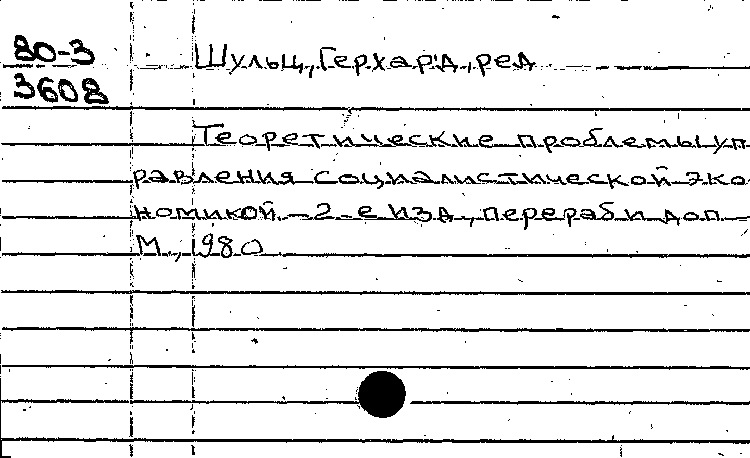 80-3 Шульц, Герхард, ред
3608
Теоретические проблемы уп
равления социалистической эко
номикой. - 2-е изд., перераб и доп -
М., 1980